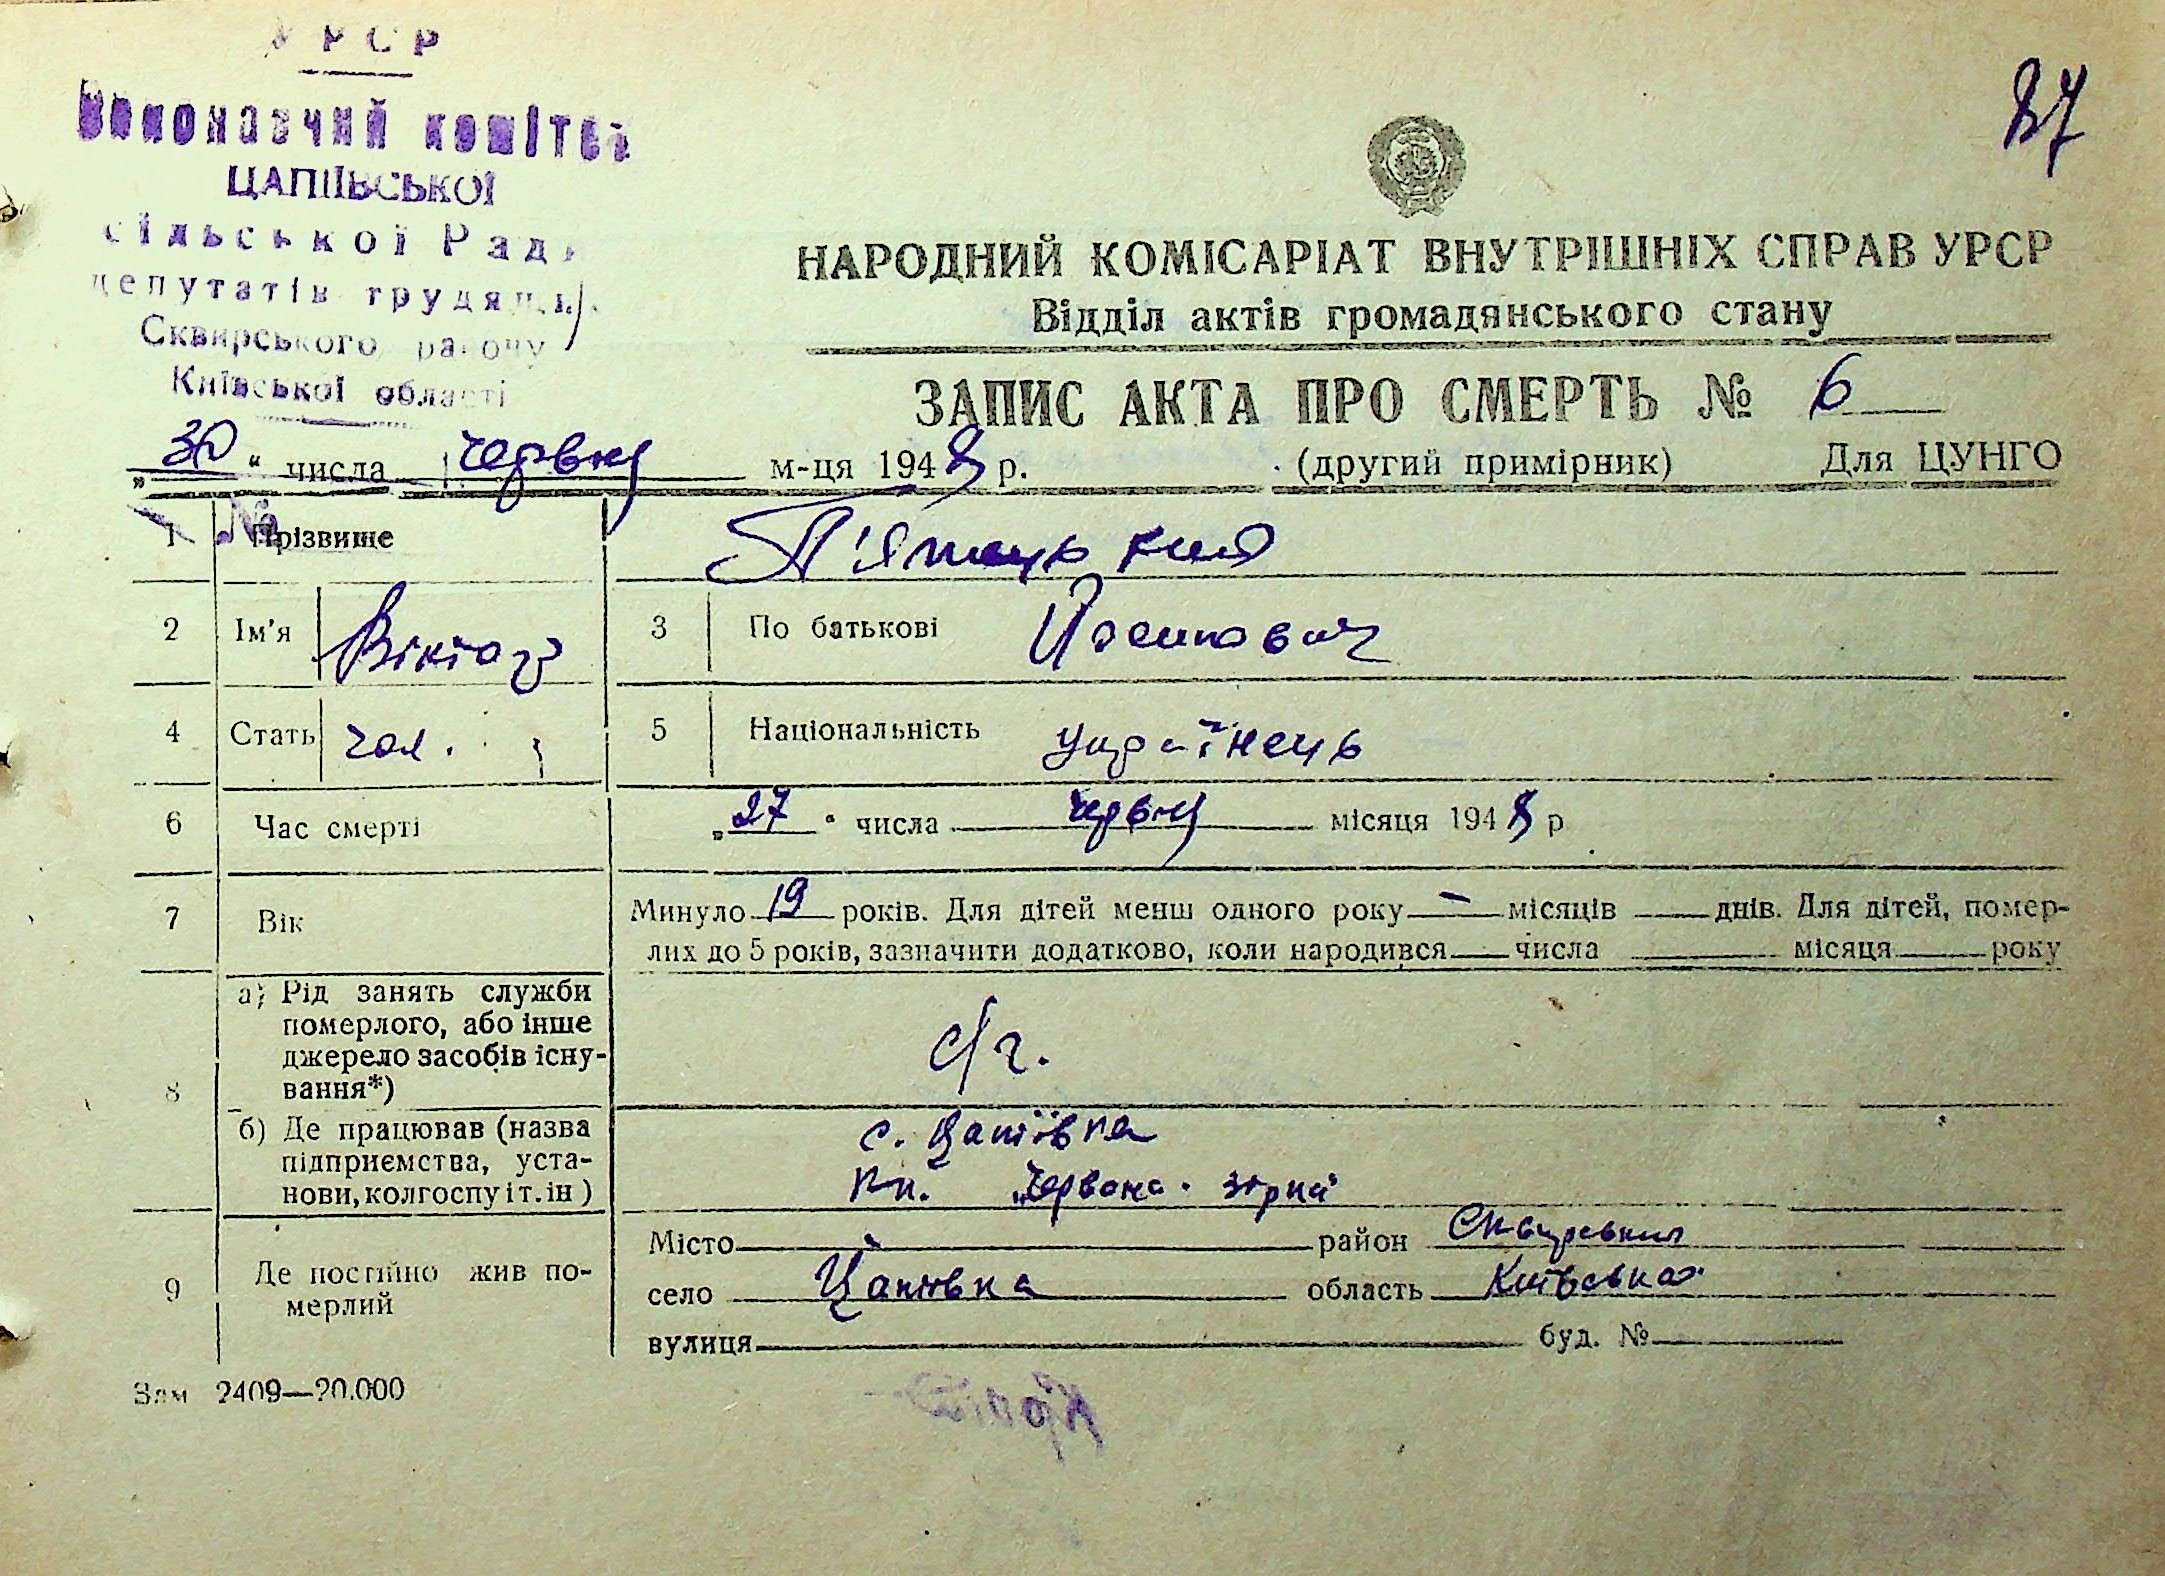 УРСР
Виконавчий комітет
ЦАПІЇВСЬКОЇ
сільської Ради
депутатів трудящих
Сквирського району
Київської області
87
НАРОДНИЙ КОМІСАРІАТ ВНУТРІШНІХ СПРАВ УРСР
Відділ актів громадянського стану
ЗАПИС АКТА ПРО СМЕРТЬ № 6
„30“ числа червня м-ця 1948 р. (другий примірник) Для ЦУНГО
№
1 Прізвище П'ятецький
2 Ім'я Віктор 3 По батькові Йосипович
4 Стать чол. 5 Національність українець
6 Час смерті „27“ числа червня місяця 1948 р
7 Вік Минуло 19 років. Для дітей менш одного року — місяців днів. Для дітей, помер-
лих до 5 років, зазначити додатково, коли народився числа місяця року
8 а) Рід занять служби
померлого, або інше
джерело засобів існу-
вання*) с/г.
б) Де працював (назва
підприємства, уста-
нови, колгоспу і т. ін) с. Цапіївка
кп. „Червона зірка"
9 Де постійно жив по-
мерлий
Місто район Сквирський
село Цапіївка область Київська
вулиця буд. №
Зам 2409—20.000